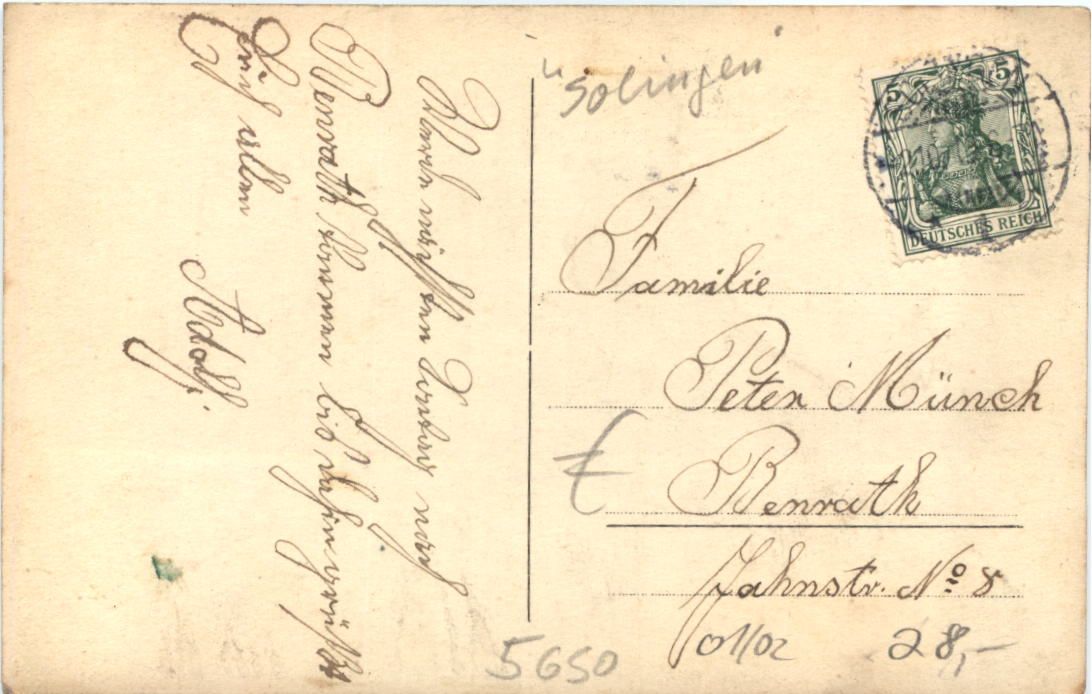 Werde nächsten Sonntag nach
Benrath kommen bis dahin grüßt
Euch allen
Adolf.
"Solingen"
5 5
DEUTSCHES REICH
Familie
Peter Münch
Benrath
Jahnstr. No 8
5650
01102
28,-